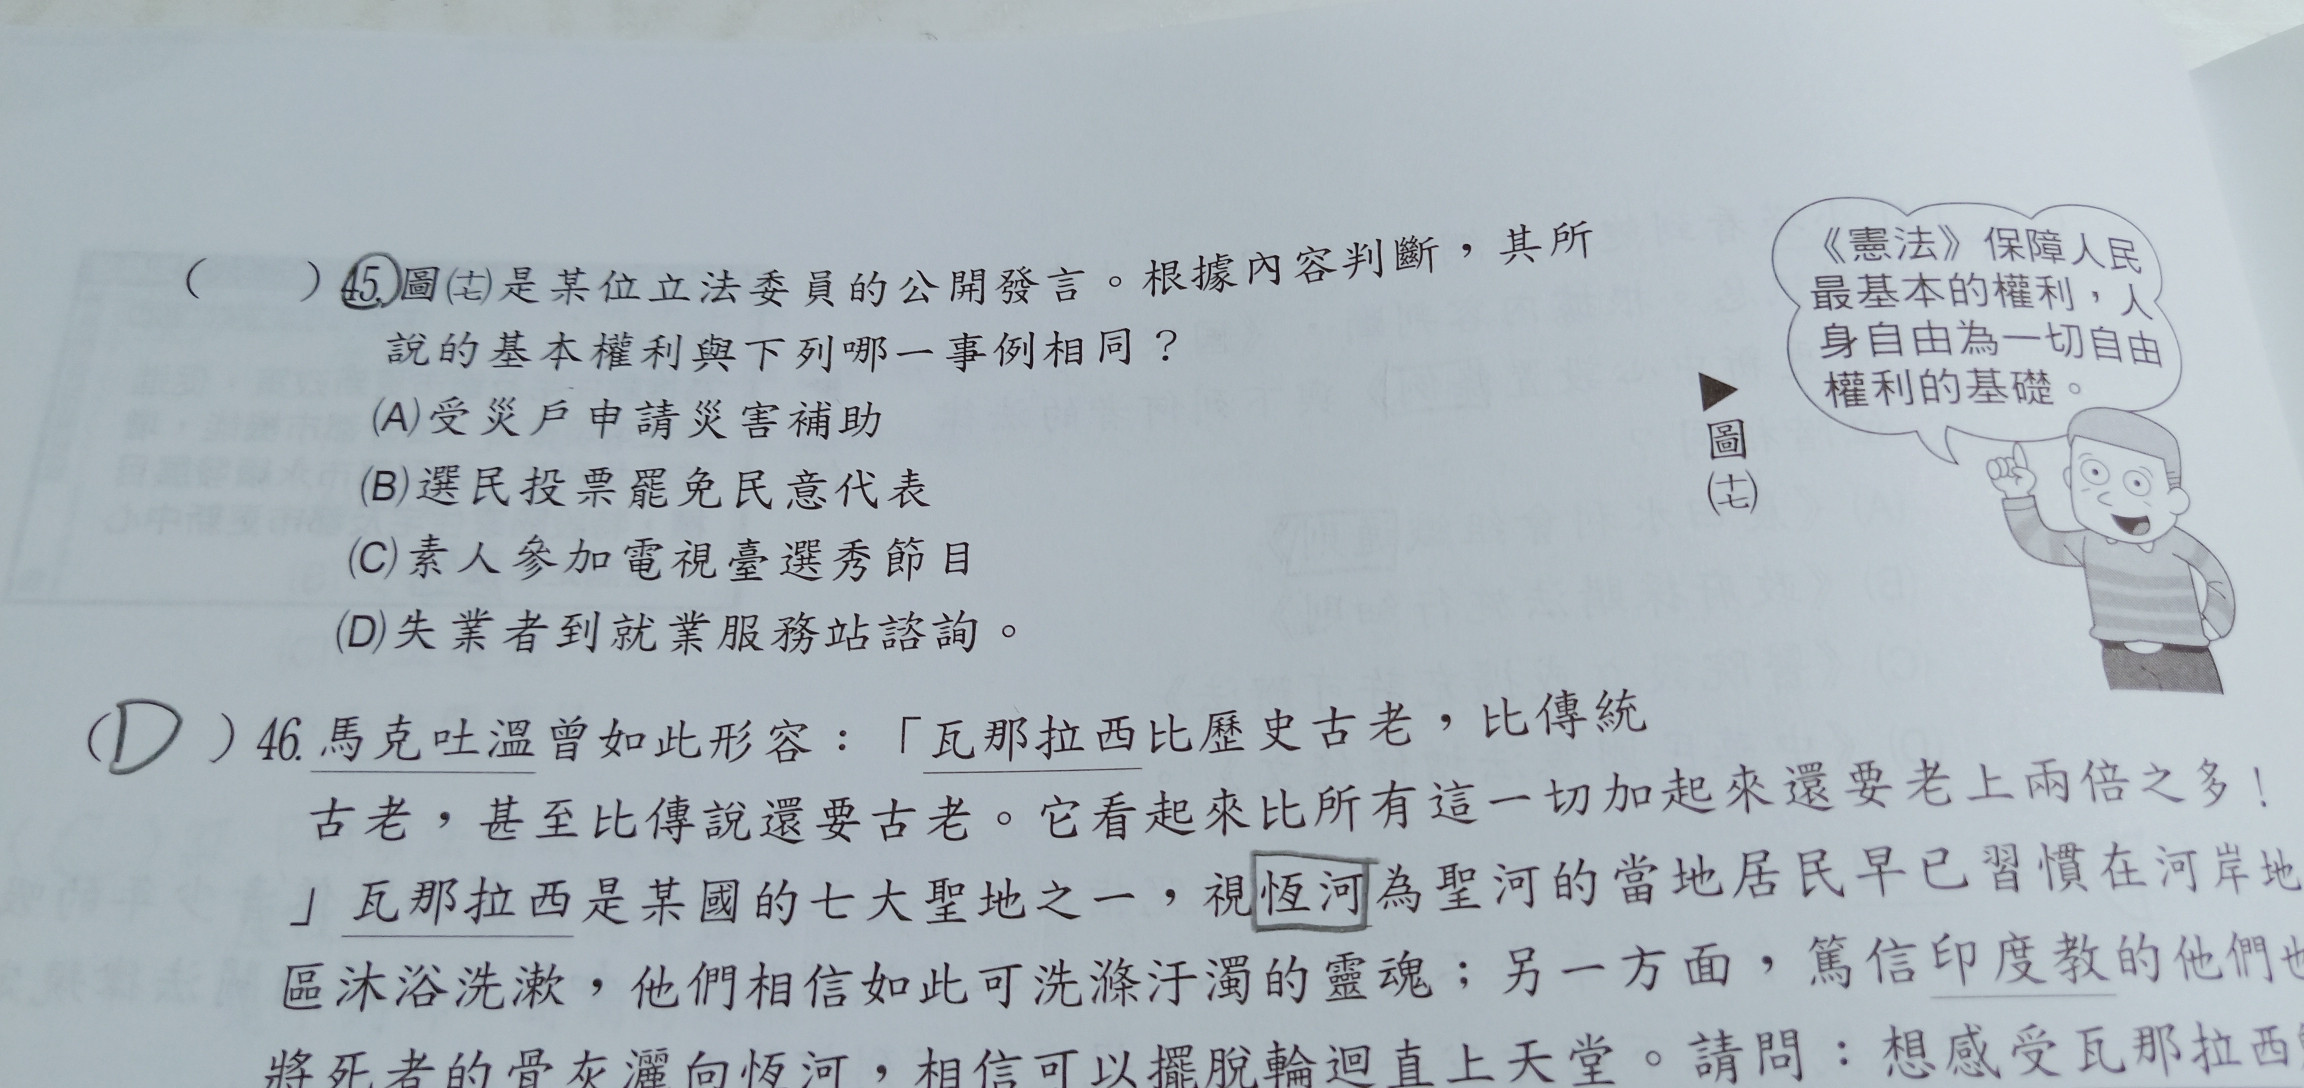 ( )45.圖(十七)是某位立法委員的公開發言。根據內容判斷，其所
說的基本權利與下列哪一事例相同？
(A)受災戶申請災害補助
(B)選民投票罷免民意代表
(C)素人參加電視臺選秀節目
(D)失業者到就業服務站諮詢。
《憲法》保障人民
最基本的權利，人
身自由為一切自由
權利的基礎。
▶圖(十七)
(D)46.馬克吐溫曾如此形容：「瓦那拉西比歷史古老，比傳統
古老，甚至比傳說還要古老。它看起來比所有這一切加起來還要老上兩倍之多！
」瓦那拉西是某國的七大聖地之一，視恆河為聖河的當地居民早已習慣在河岸地
區沐浴洗漱，他們相信如此可洗滌汙濁的靈魂；另一方面，篤信印度教的他們也
將死者的骨灰灑向恆河，相信可以擺脫輪迴直上天堂。請問：想感受瓦那拉西